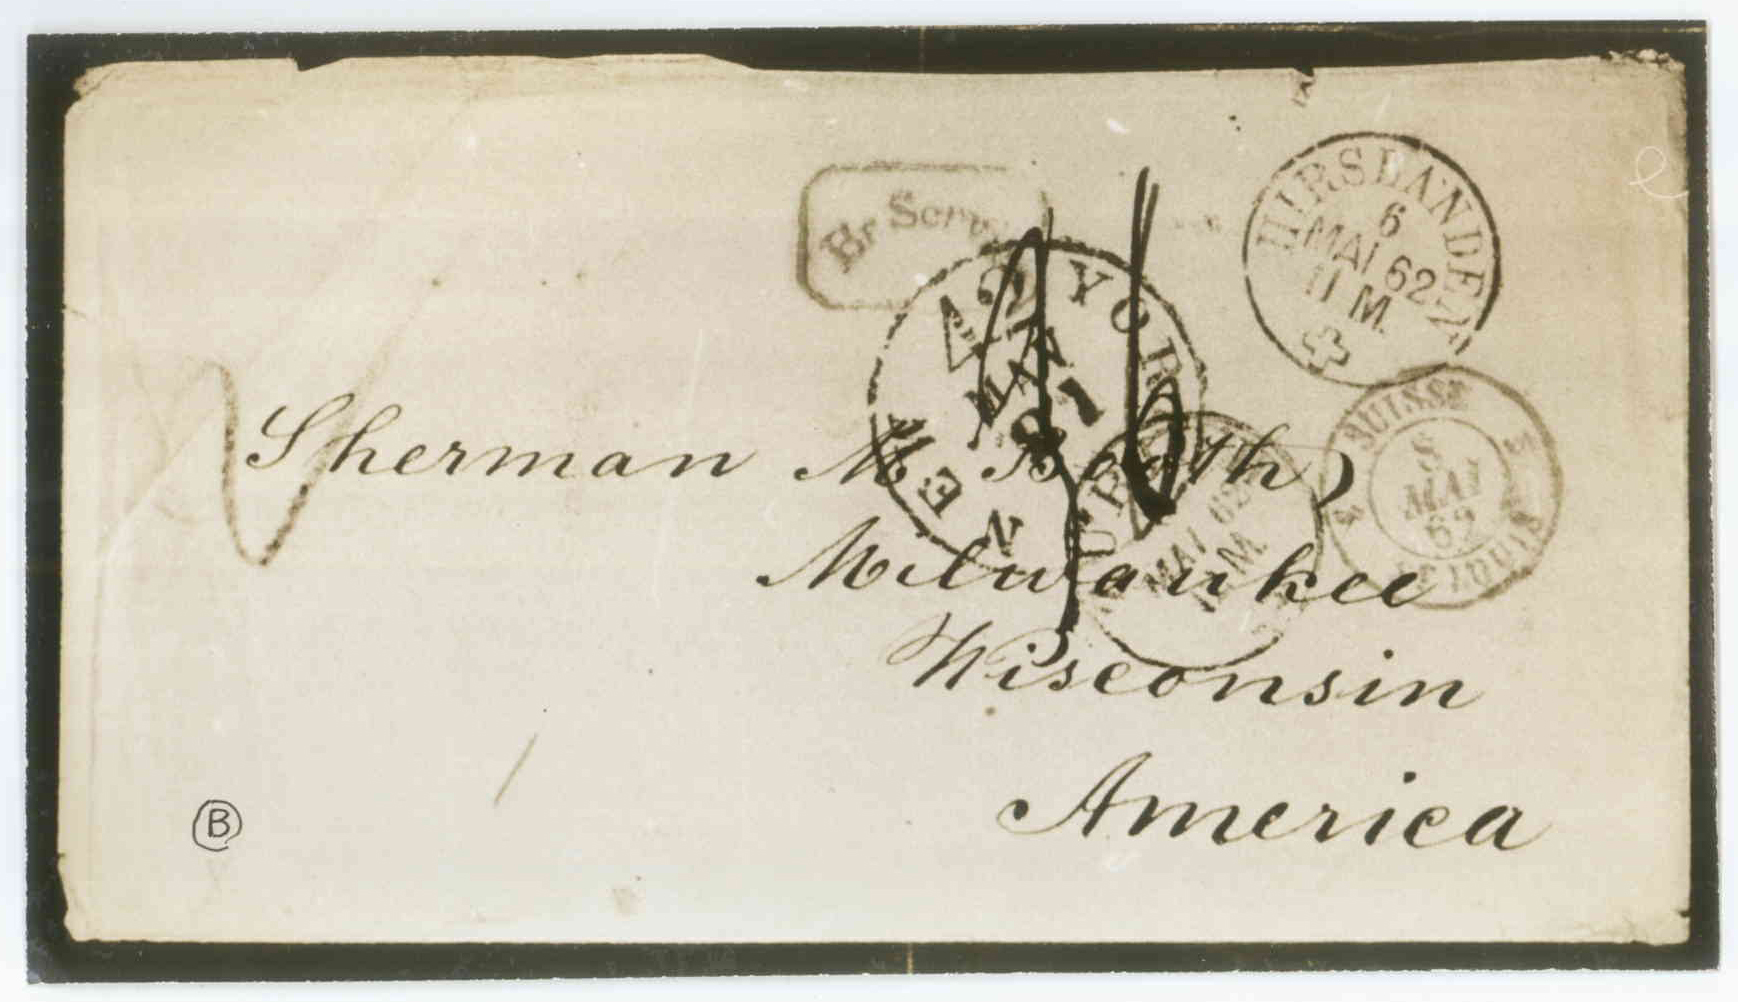 Br Servi
HIRSLANDEN
6
MAI 62
11 M.
42
NEW YORK
MAY
21
SUISSE
8
MAI
62
MAI 62
M.
Sherman M Booth,
Milwaukee
Wisconsin
America
B